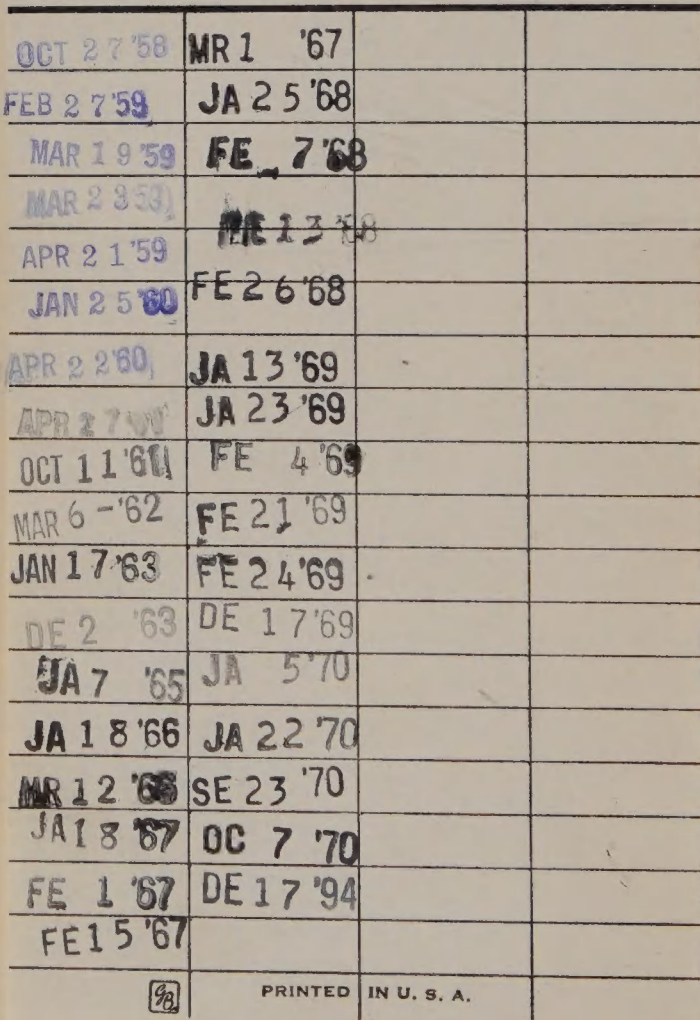 OCT 27 '58
FEB 27 '59
MAR 19 '59
MAR 23
APR 21 '59
JAN 25 '60
APR 22 '60
APR 27
OCT 11 '61
MAR 6 - '62
JAN 17 '63
DE 2 '63
JA 7 '65
JA 18 '66
MR 12 '66
JA 18 '67
FE 1 '67
FE 15 '67
MR 1 '67
JA 25 '68
FE 7 '68
13 '68
FE 26 '68
JA 13 '69
JA 23 '69
FE 4 '69
FE 21 '69
FE 24 '69
DE 17 '69
JA 5 '70
JA 22 '70
SE 23 '70
OC 7 '70
DE 17 '94
GB
PRINTED IN U. S. A.